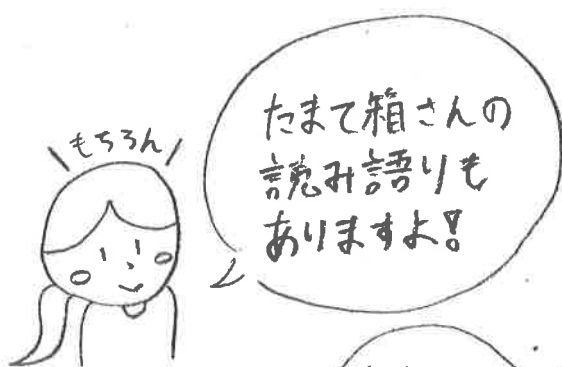 もちろん
たまて箱さんの
読み語りも
ありますよ!